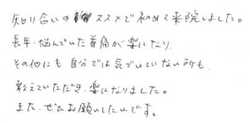 知り合いのススメで初めて来院しました。
長年悩んでいた首痛が楽になり、
その他にも自分では気づいていない所も
教えていただき、楽になりました。
また、ぜひお願いしたいです。